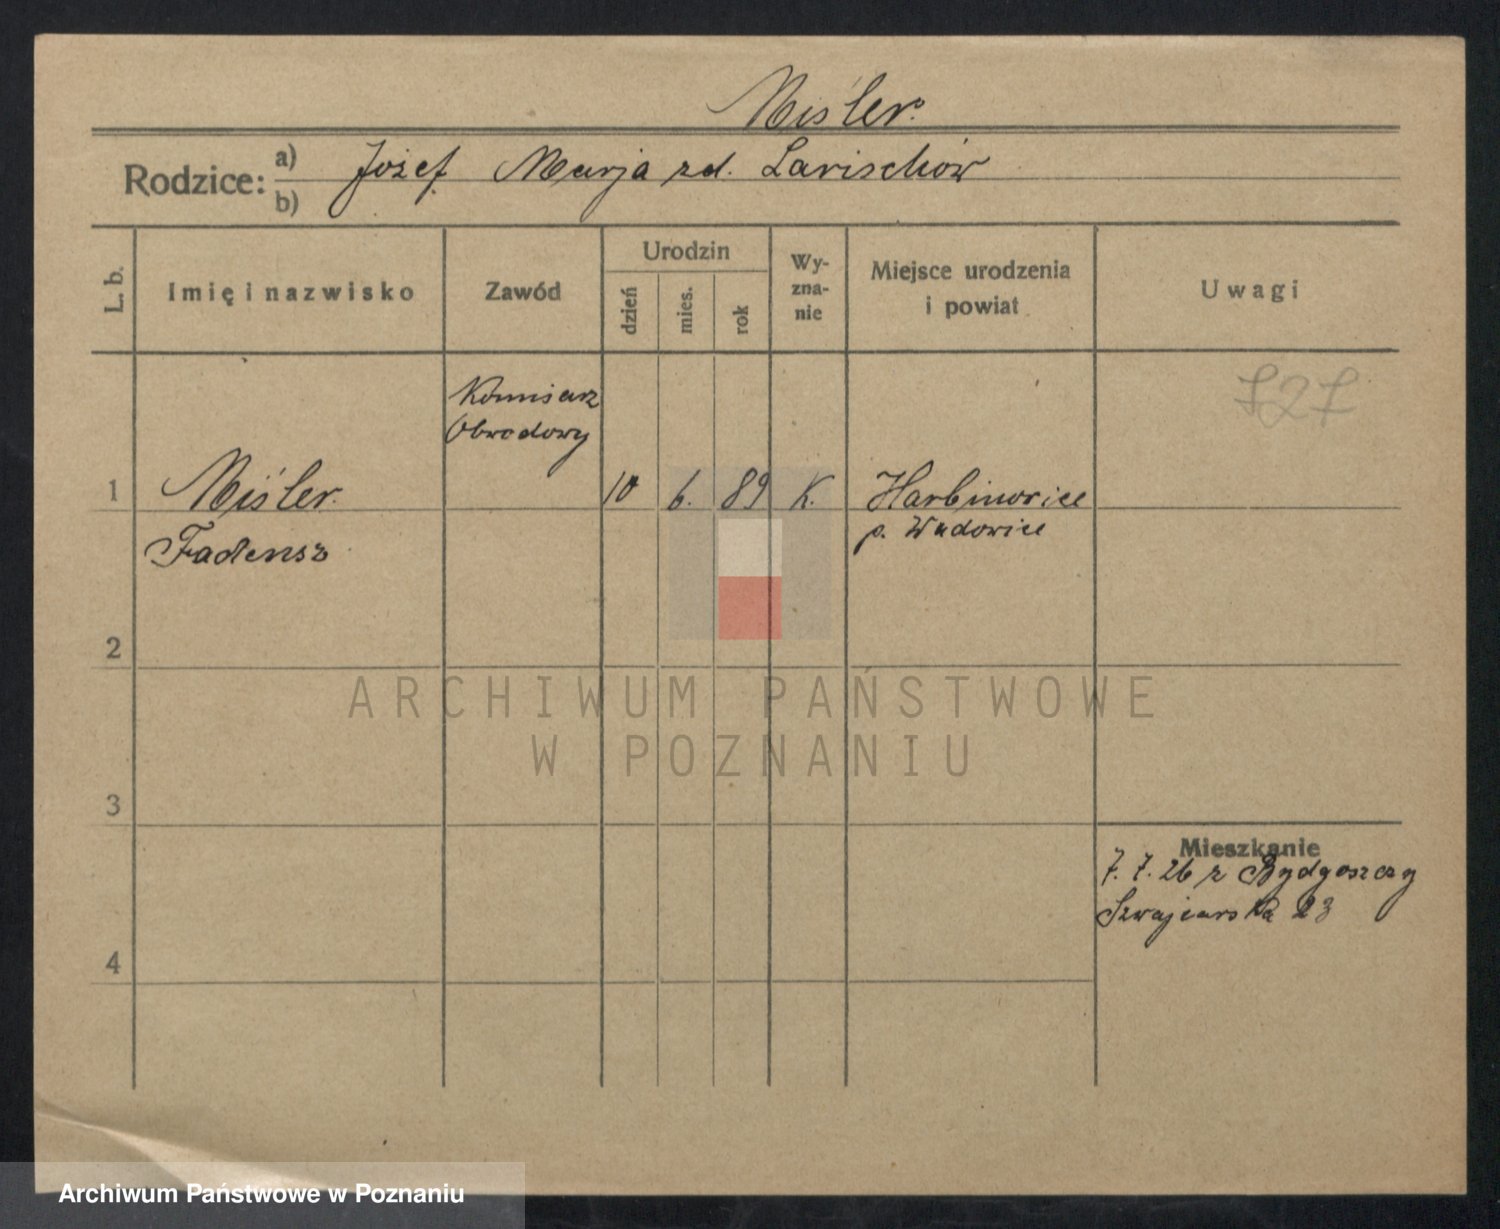 Miśler.
Rodzice: a) Józef Marja zd. Larischów
b)
L. b. Imię i nazwisko Zawód Urodzin dzień mies. rok Wyznanie Miejsce urodzenia i powiat Uwagi
Komisarz
Obwodowy
727
1 Miśler. 10 6. 89 K. Harbinowice
Tadeusz p. Wadowice
2
ARCHIWUM PAŃSTWOWE
W POZNANIU
3
Mieszkanie
7. 7. 26 z Bydgoszczy
Szwajcarska 23
4
Archiwum Państwowe w Poznaniu